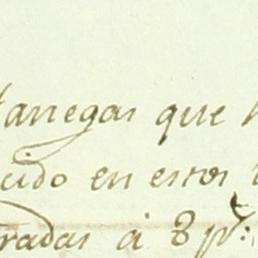 fanegas que
cido en estos
radas á 8 p.^s: